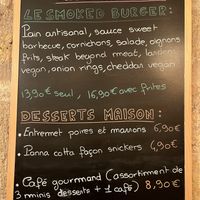 LE SMOKED BURGER :
Pain artisanal, sauce sweet
barbecue, cornichons, salade, oignons
frits, steak beyond meat, lardons
vegan, onion rings, cheddar vegan
13,90€ seul, 16,90€ avec frites
DESSERTS MAISON :
• Entremet poires et marrons 6,90€
• Panna cotta façon snickers 4,90€
• Café gourmand (assortiment de
3 minis desserts + 1 café) 8,90€